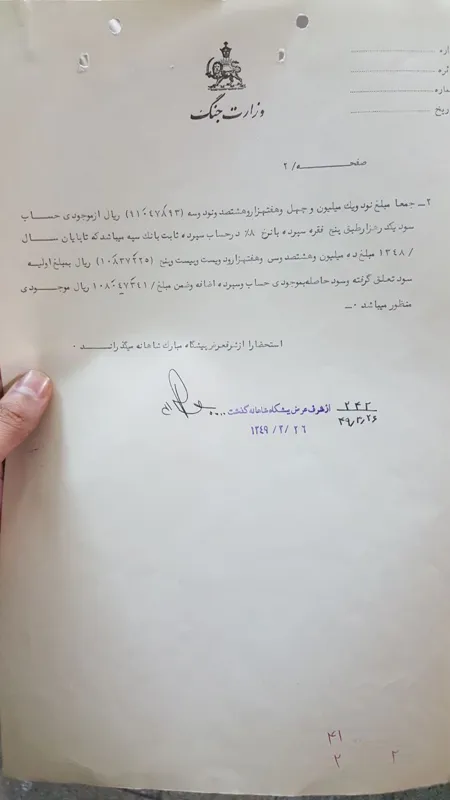 وزارت جنگ
صفحـــــه/ ۲
۲- جمعا مبلغ نود ویك میلیون و چهل و هفتهزار و هشتصد و نود و سه ریال از موجودی حساب
سود یكدرهزار طبق پنج فقره سپرده با نرخ ۸٪ در حساب سپرده ثابت بانك سپه میباشد که تا پایان سال
۱۳٤۸/ مبلغ ده میلیون و هشتصد و سی و هفتهزار و دویست و بیست و پنج (۱۰/۸۳۷/۲۲۵) ریال بمبلغ اولیه
سود تعلق گرفته و سود حاصله بموجودی حساب و سپرده اضافه و ضمن مبلغ/ ۱۰۸٠٤۷۳٤۱ ریال موجودی
منظور میباشد ۰-
استحضارا از شرفعرض پیشگاه مبارك شاهانه میگذرانـــد ۰
۲۴۲
۴۹/۲/۲۶
از شرف عرض پیشگاه شاهانه گذشت
۱۳٤۹ /۲/ ۲٦
۴۱
۲
۲